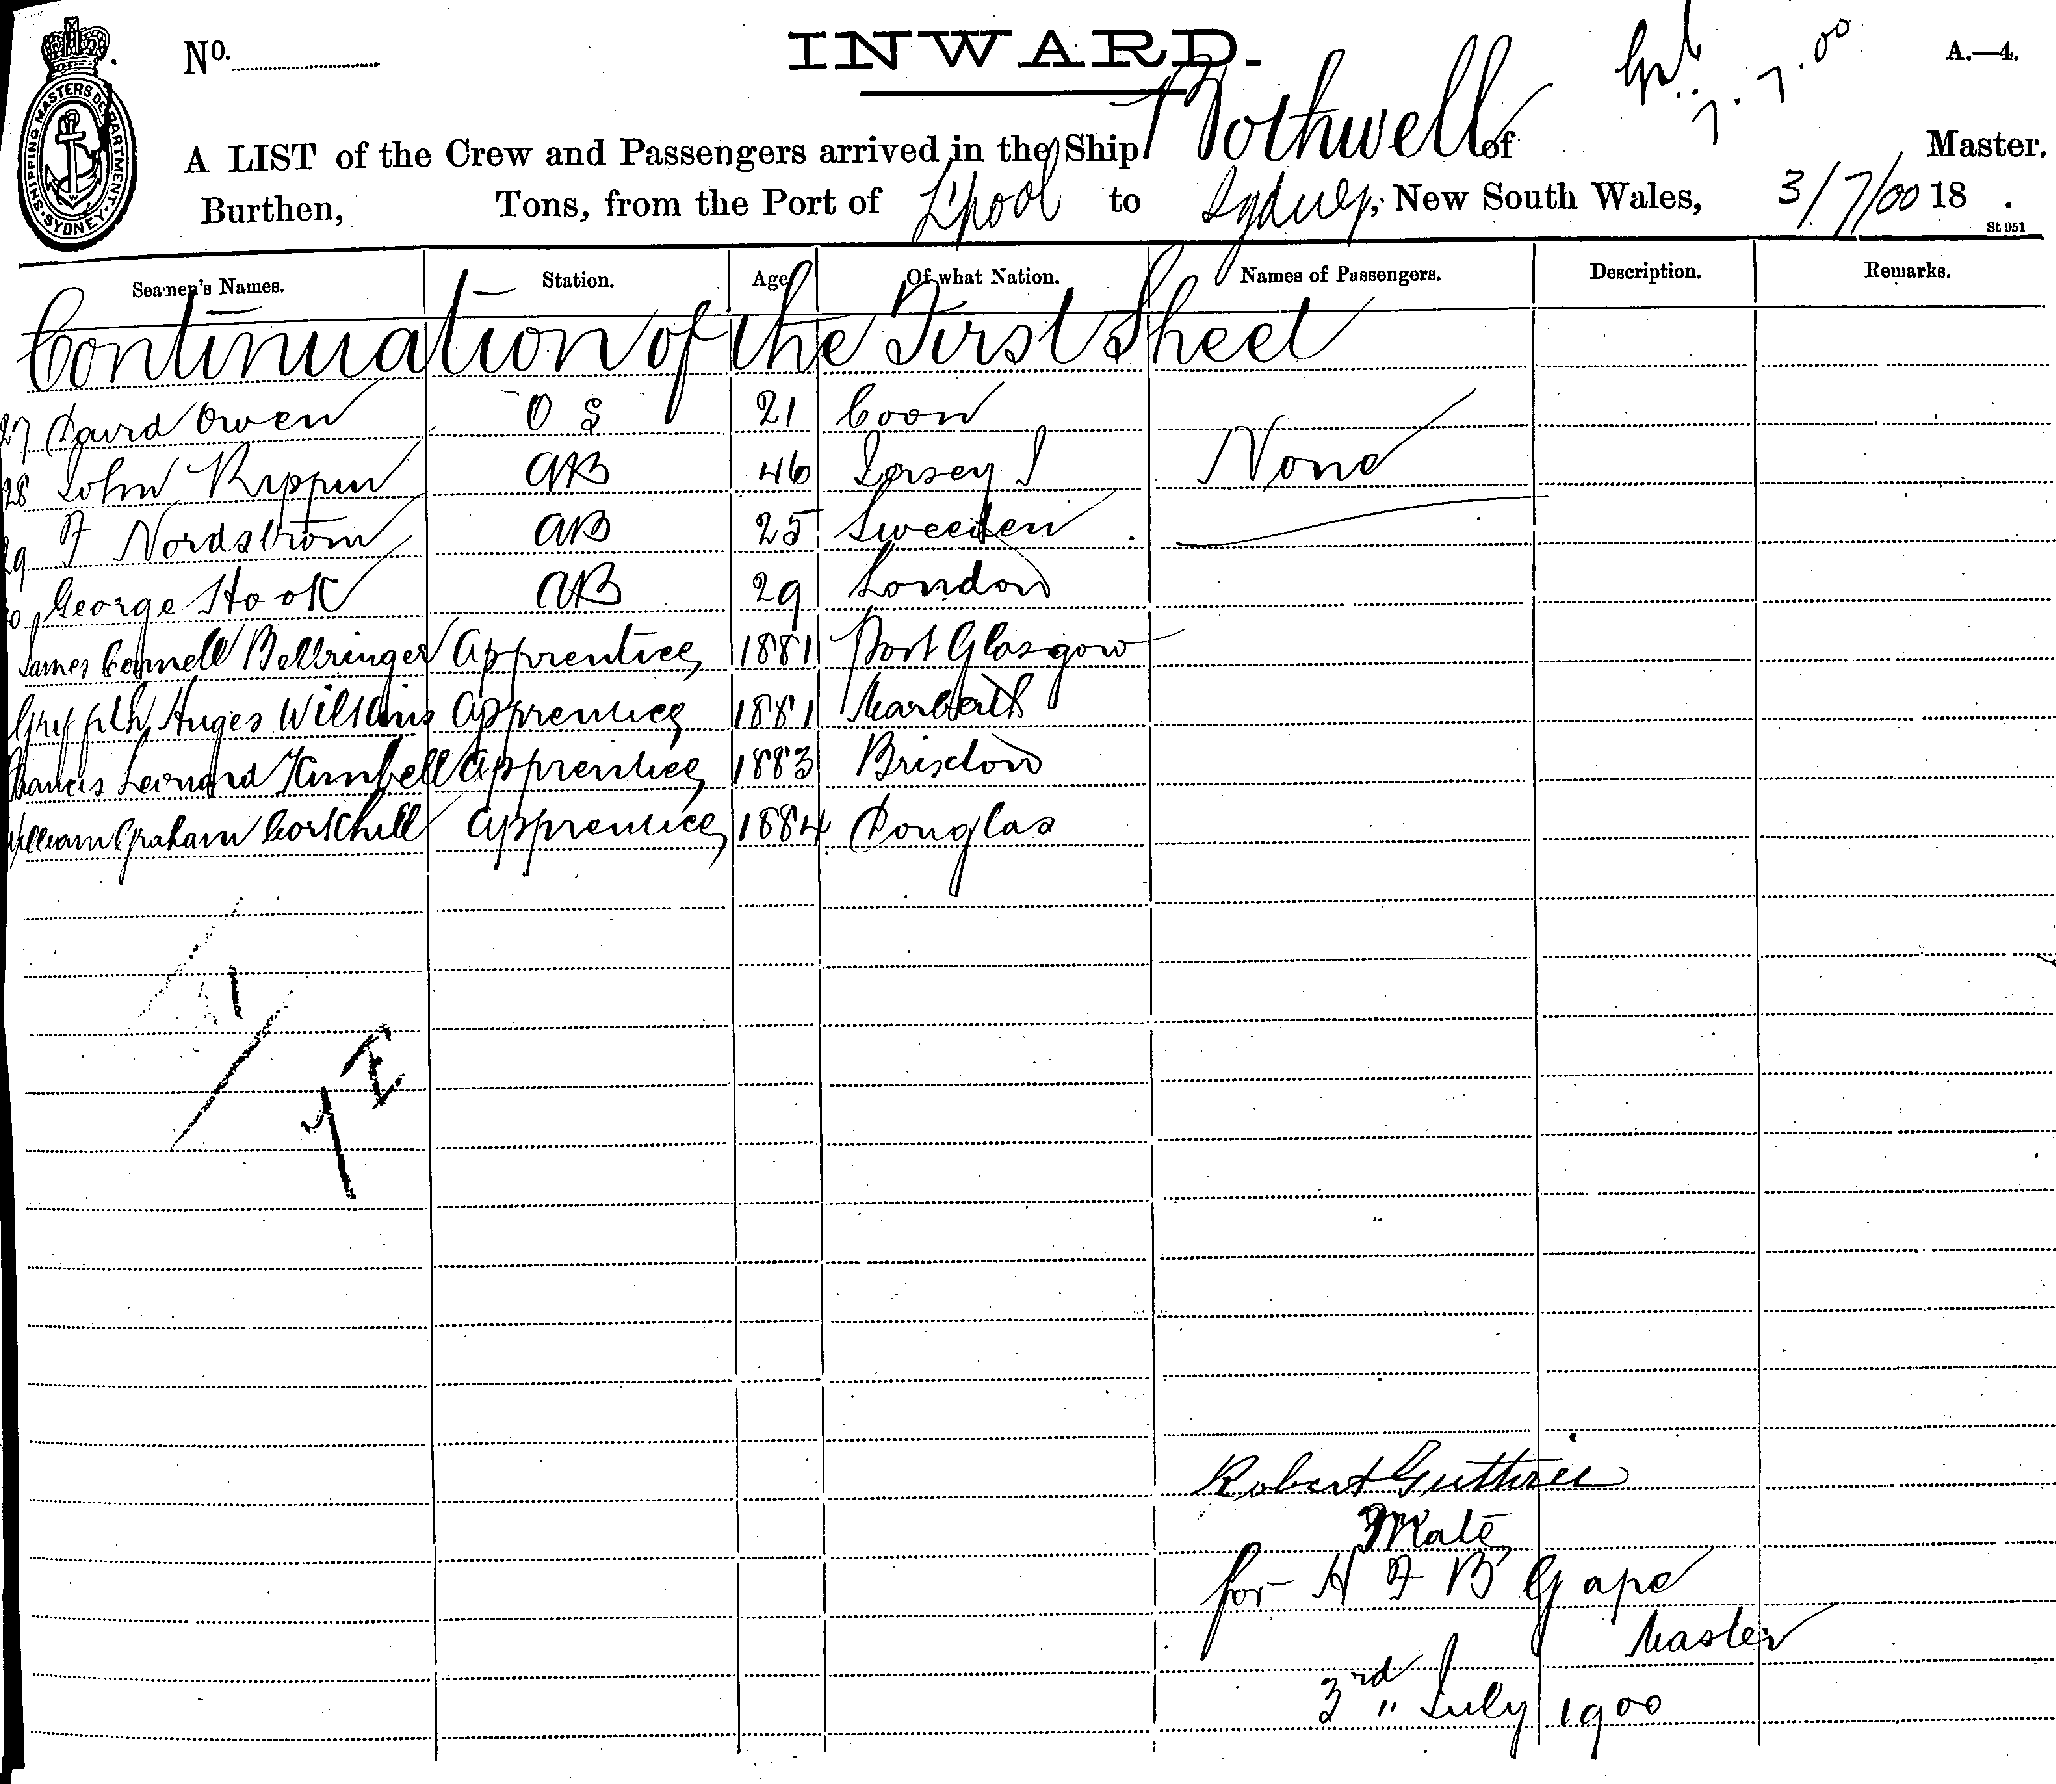 No. INWARD. 7.7.00 A.—4.
SHIPPING MASTERS DEPARTMENT. SYDNEY.
A LIST of the Crew and Passengers arrived in the Ship Bothwell of Master.
Burthen, Tons, from the Port of L'pool to Sydney, New South Wales, 3/7/00 18 .
St 951
Seamen's Names. Station. Age Of what Nation. Names of Passengers. Description. Remarks.
Continuation of the First Sheet
27 David Owen O S 21
28 John Rippin AB 46 Jersey I None
29 F Nordstrom AB 25 Sweeden
George Hook AB 29 London
James Connell Bellringer Apprentice 1881 Port Glasgow
Griffith Huges Wilkins Apprentice 1881 Narberth
Francis Leonard Kimbell Apprentice 1883 Brixton
William Graham Corkhill Apprentice 1884 Douglas
Robert Guthrie
Mate
for H F B Gape
Master
3rd July 1900